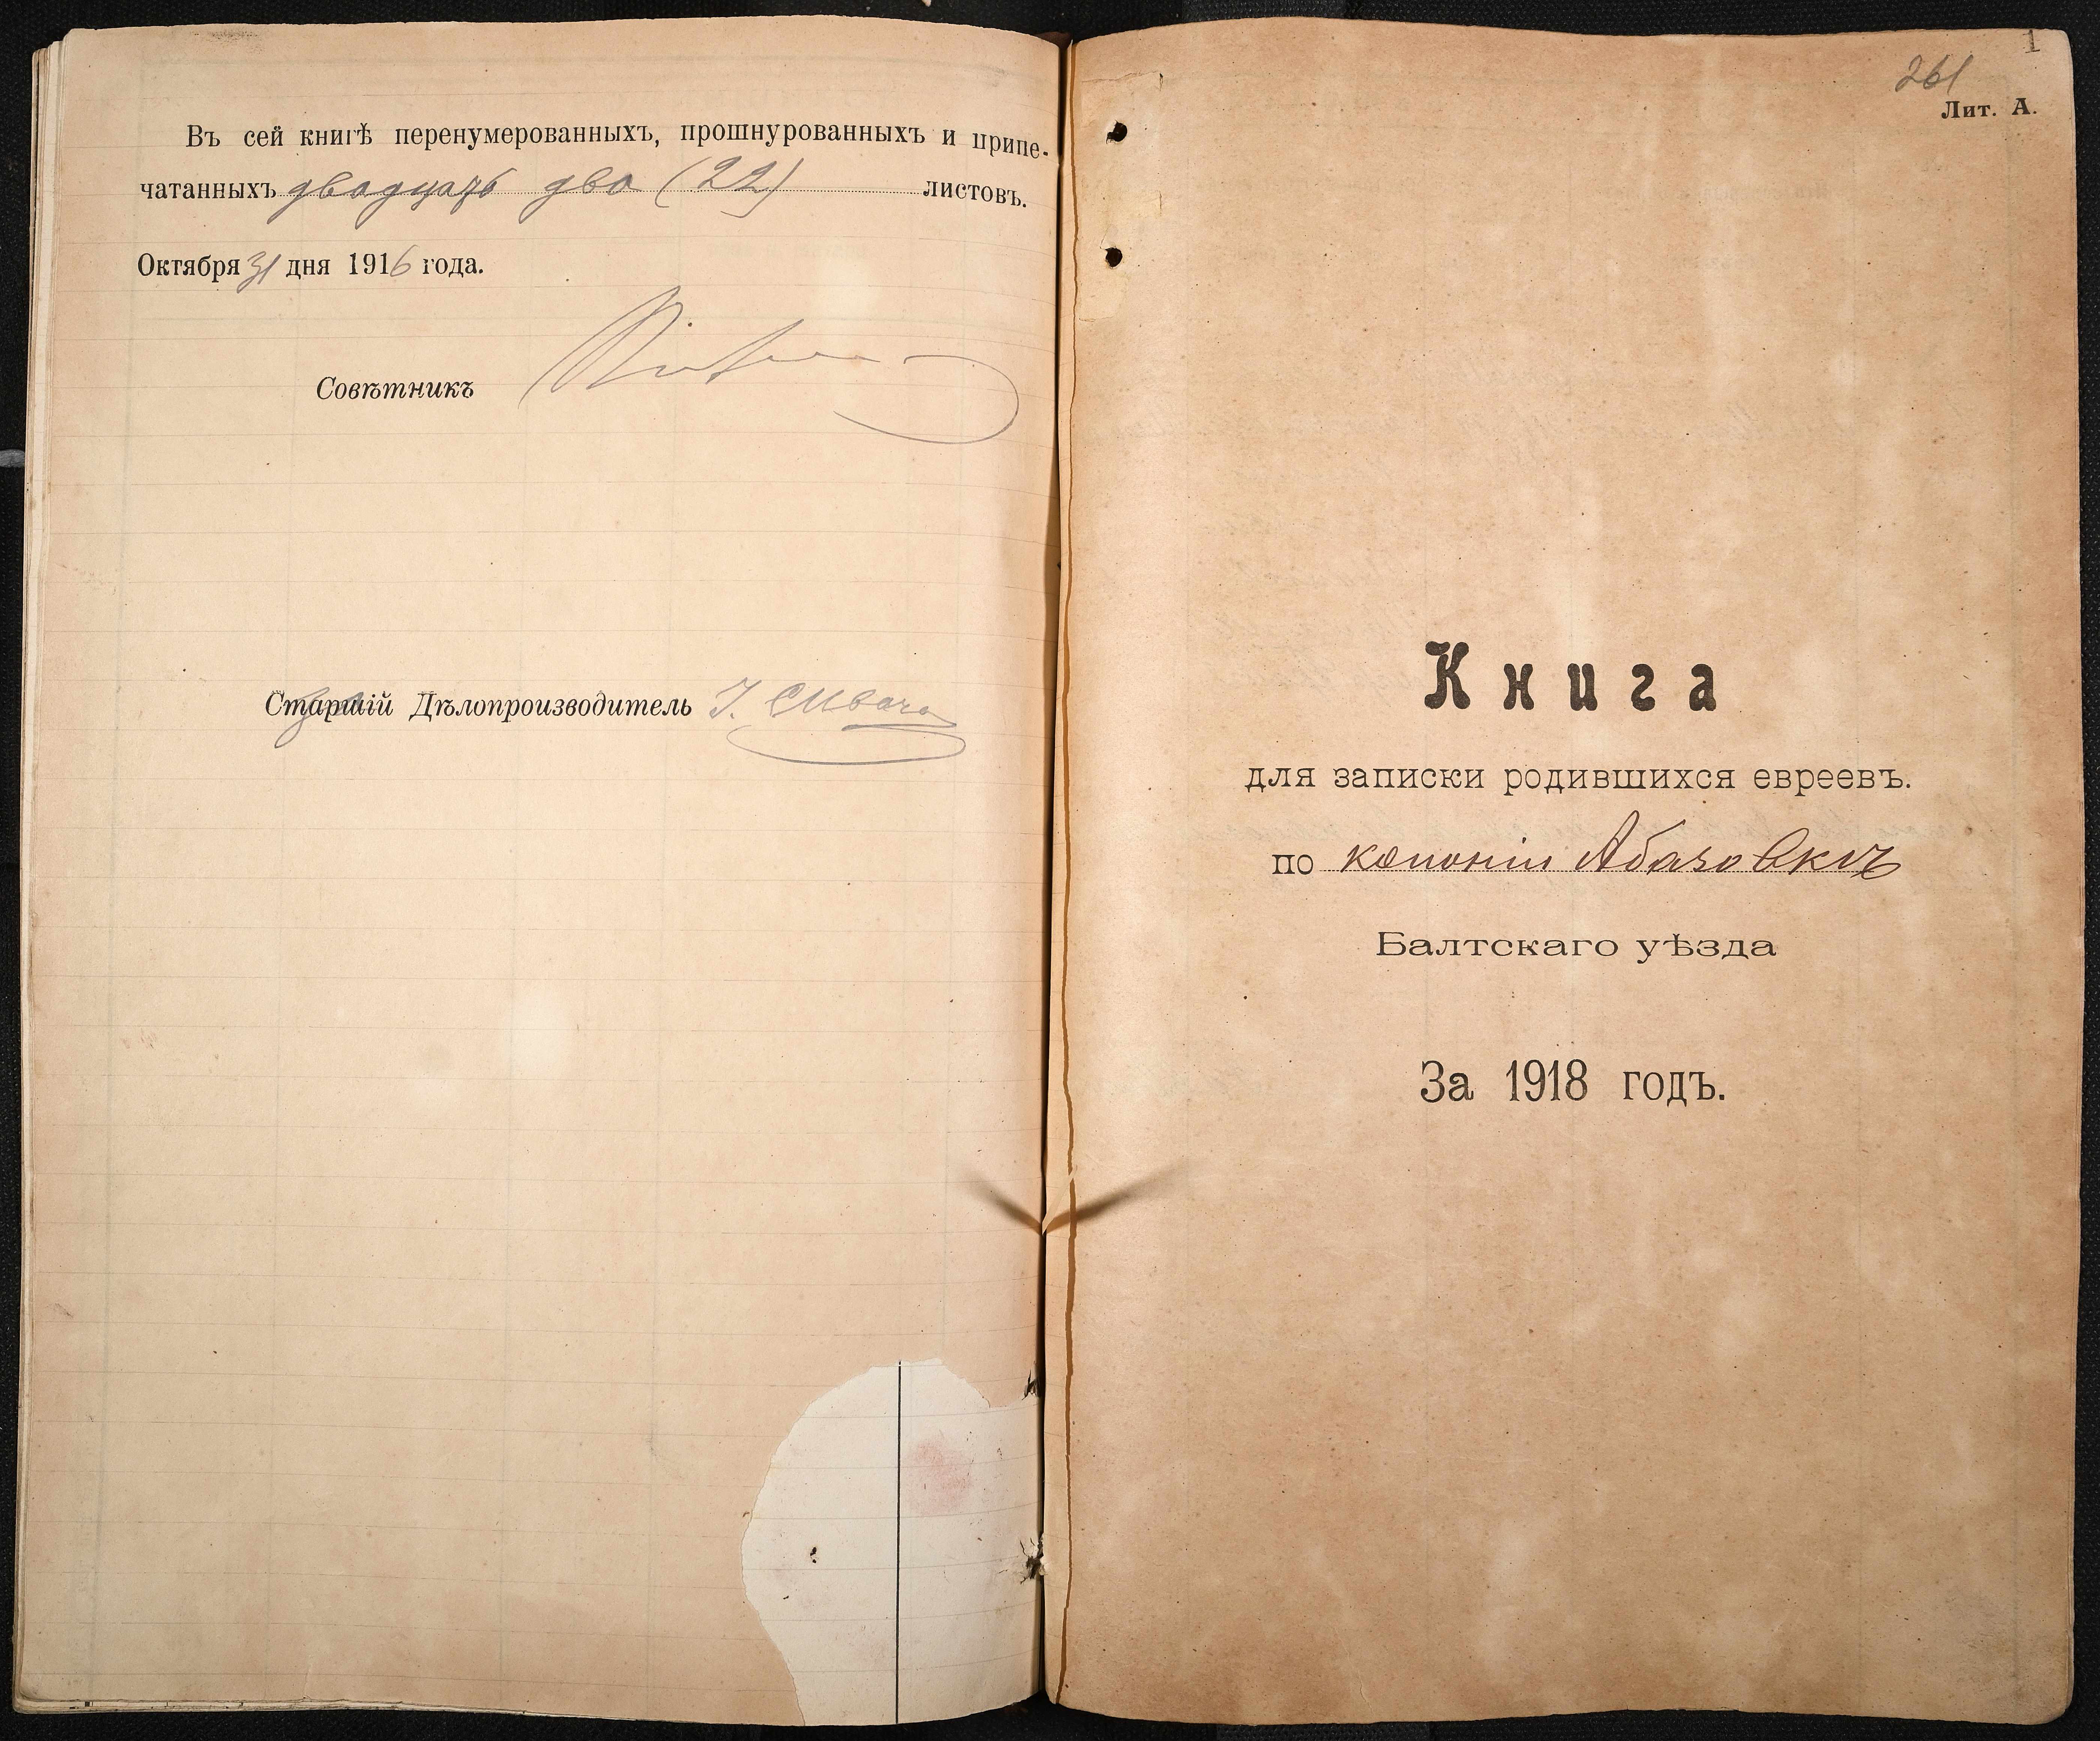 Въ сей книгѣ перенумерованныхъ, прошнурованныхъ и припе-
чатанныхъ двадцать два (22) листовъ.
Октября 31 дня 1916 года.
Совѣтникъ
Старшій Дѣлопроизводитель
1
261
Лит. А.
Книга
для записки родившихся евреевъ.
по колоніи Абазовкѣ
Балтскаго уѣзда
За 1918 годъ.